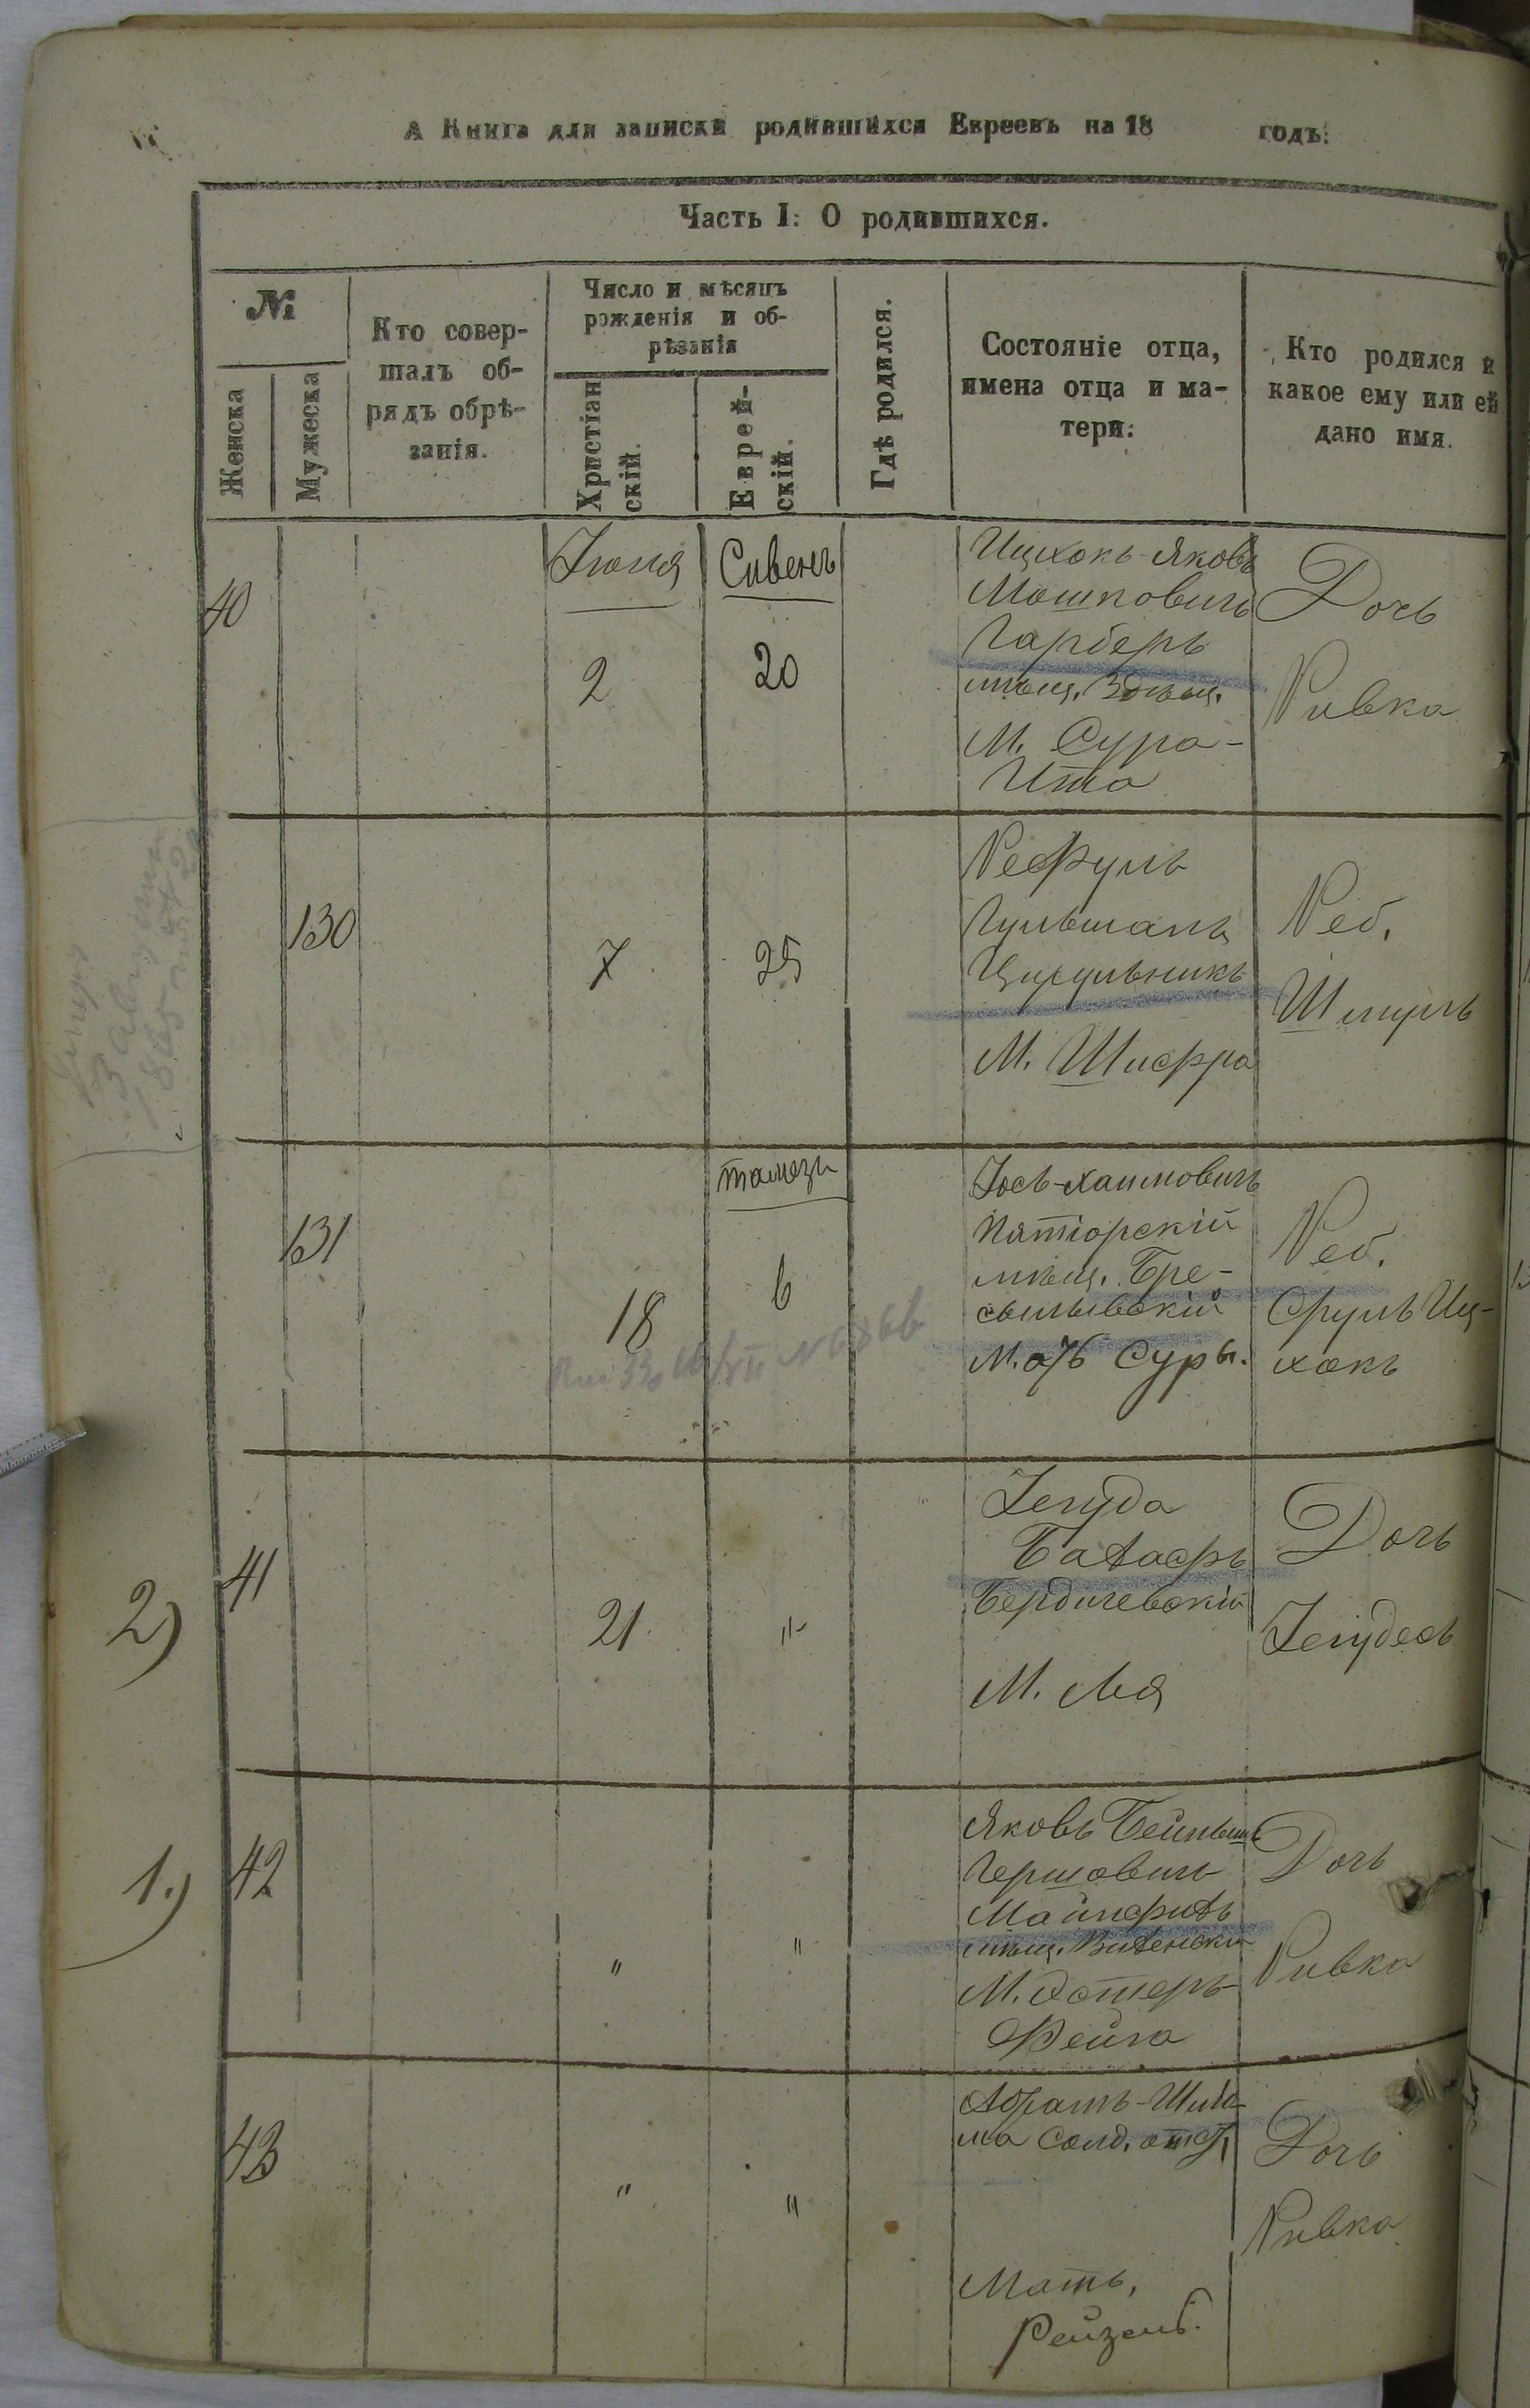 А Книга для записки родившихся Евреевъ на 18 годъ.
Часть I: О родившихся.
№
Женска
Мужеска
Кто совер-
шалъ об-
рядъ обрѣ-
занія.
Число и мѣсяцъ
рожденія и об-
рѣзанія
Христіан
скій.
Еврей-
скій.
Гдѣ родился.
Состояніе отца,
имена отца и ма-
тери:
Кто родился и
какое ему или ей
дано имя.
40
Іюня
2
Сивенъ
20
Ицхокъ-Яковъ
Мошковичъ
Гарберъ
мѣщ.
М. Сура-
Ита
Дочь
Ривка
130
7
25
Рефуль
Гульманъ
Цирульникъ
М. Шифра
Реб.
Шмуль
131
18
тамезъ
6
Іось-Хаимовичъ
Пятіорскій
мѣщ. Бре-
М. Суры.
Реб.
Сруль Иц-
хокъ
2)
41
21
"
Іегуда
Бердичевскій
М. Лея
Дочь
Іегудесъ
1.)
42
"
"
Яковъ Бейнышъ
Гершовичъ
мѣщ.
М. Эстеръ
Фейга
Дочь
Ривка
43
"
"
Абрамъ-Шлио-
ма солд. отст.
Мать,
Рейзель.
Дочь
Ривка